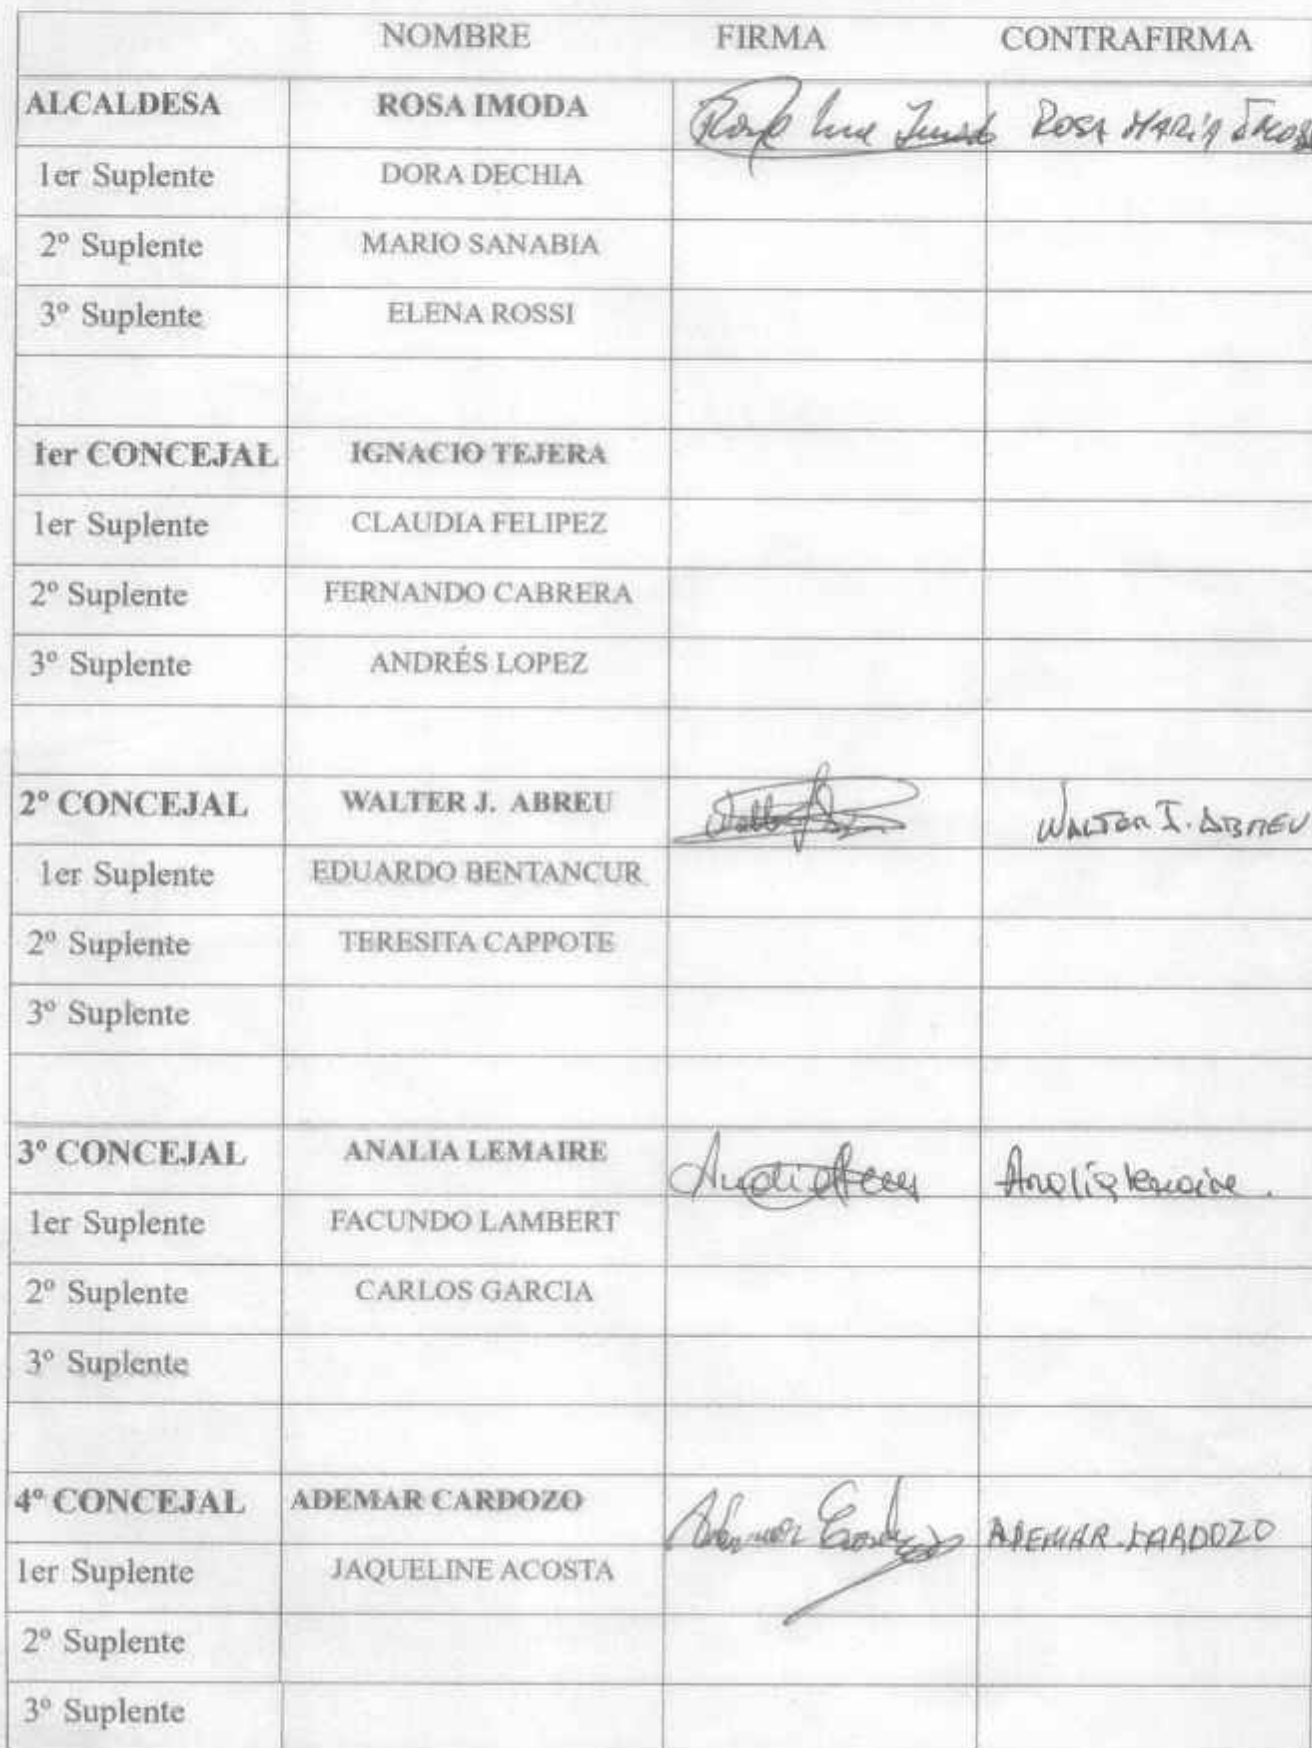 NOMBRE FIRMA CONTRAFIRMA
ALCALDESA ROSA IMODA ROSA MARÍA IMODA
1er Suplente DORA DECHIA
2º Suplente MARIO SANABIA
3º Suplente ELENA ROSSI
1er CONCEJAL IGNACIO TEJERA
1er Suplente CLAUDIA FELIPEZ
2º Suplente FERNANDO CABRERA
3º Suplente ANDRÉS LOPEZ
2º CONCEJAL WALTER J. ABREU WALTER J. ABREU
1er Suplente EDUARDO BENTANCUR
2º Suplente TERESITA CAPPOTE
3º Suplente
3º CONCEJAL ANALIA LEMAIRE Analia Lemaire.
1er Suplente FACUNDO LAMBERT
2º Suplente CARLOS GARCIA
3º Suplente
4º CONCEJAL ADEMAR CARDOZO Ademar Cardozo ADEMAR CARDOZO
1er Suplente JAQUELINE ACOSTA
2º Suplente
3º Suplente